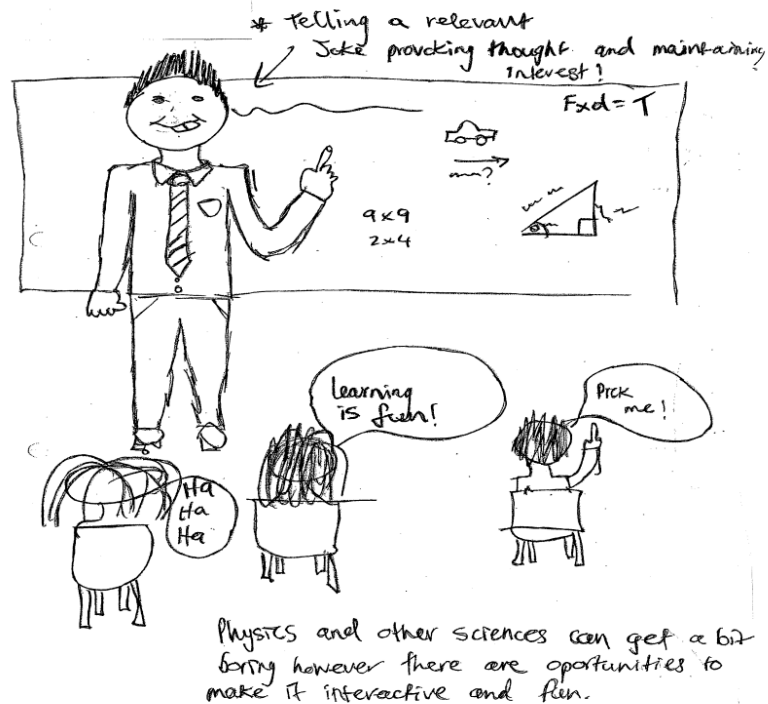 * Telling a relevant
Joke provoking thought and maintaining
interest!
Fxd = T
m?
9x9
2x4
learning
is fun!
Pick
me!
Ha
Ha
Ha
Physics and other sciences can get a bit
boring however there are oportunities to
make it interactive and fun.